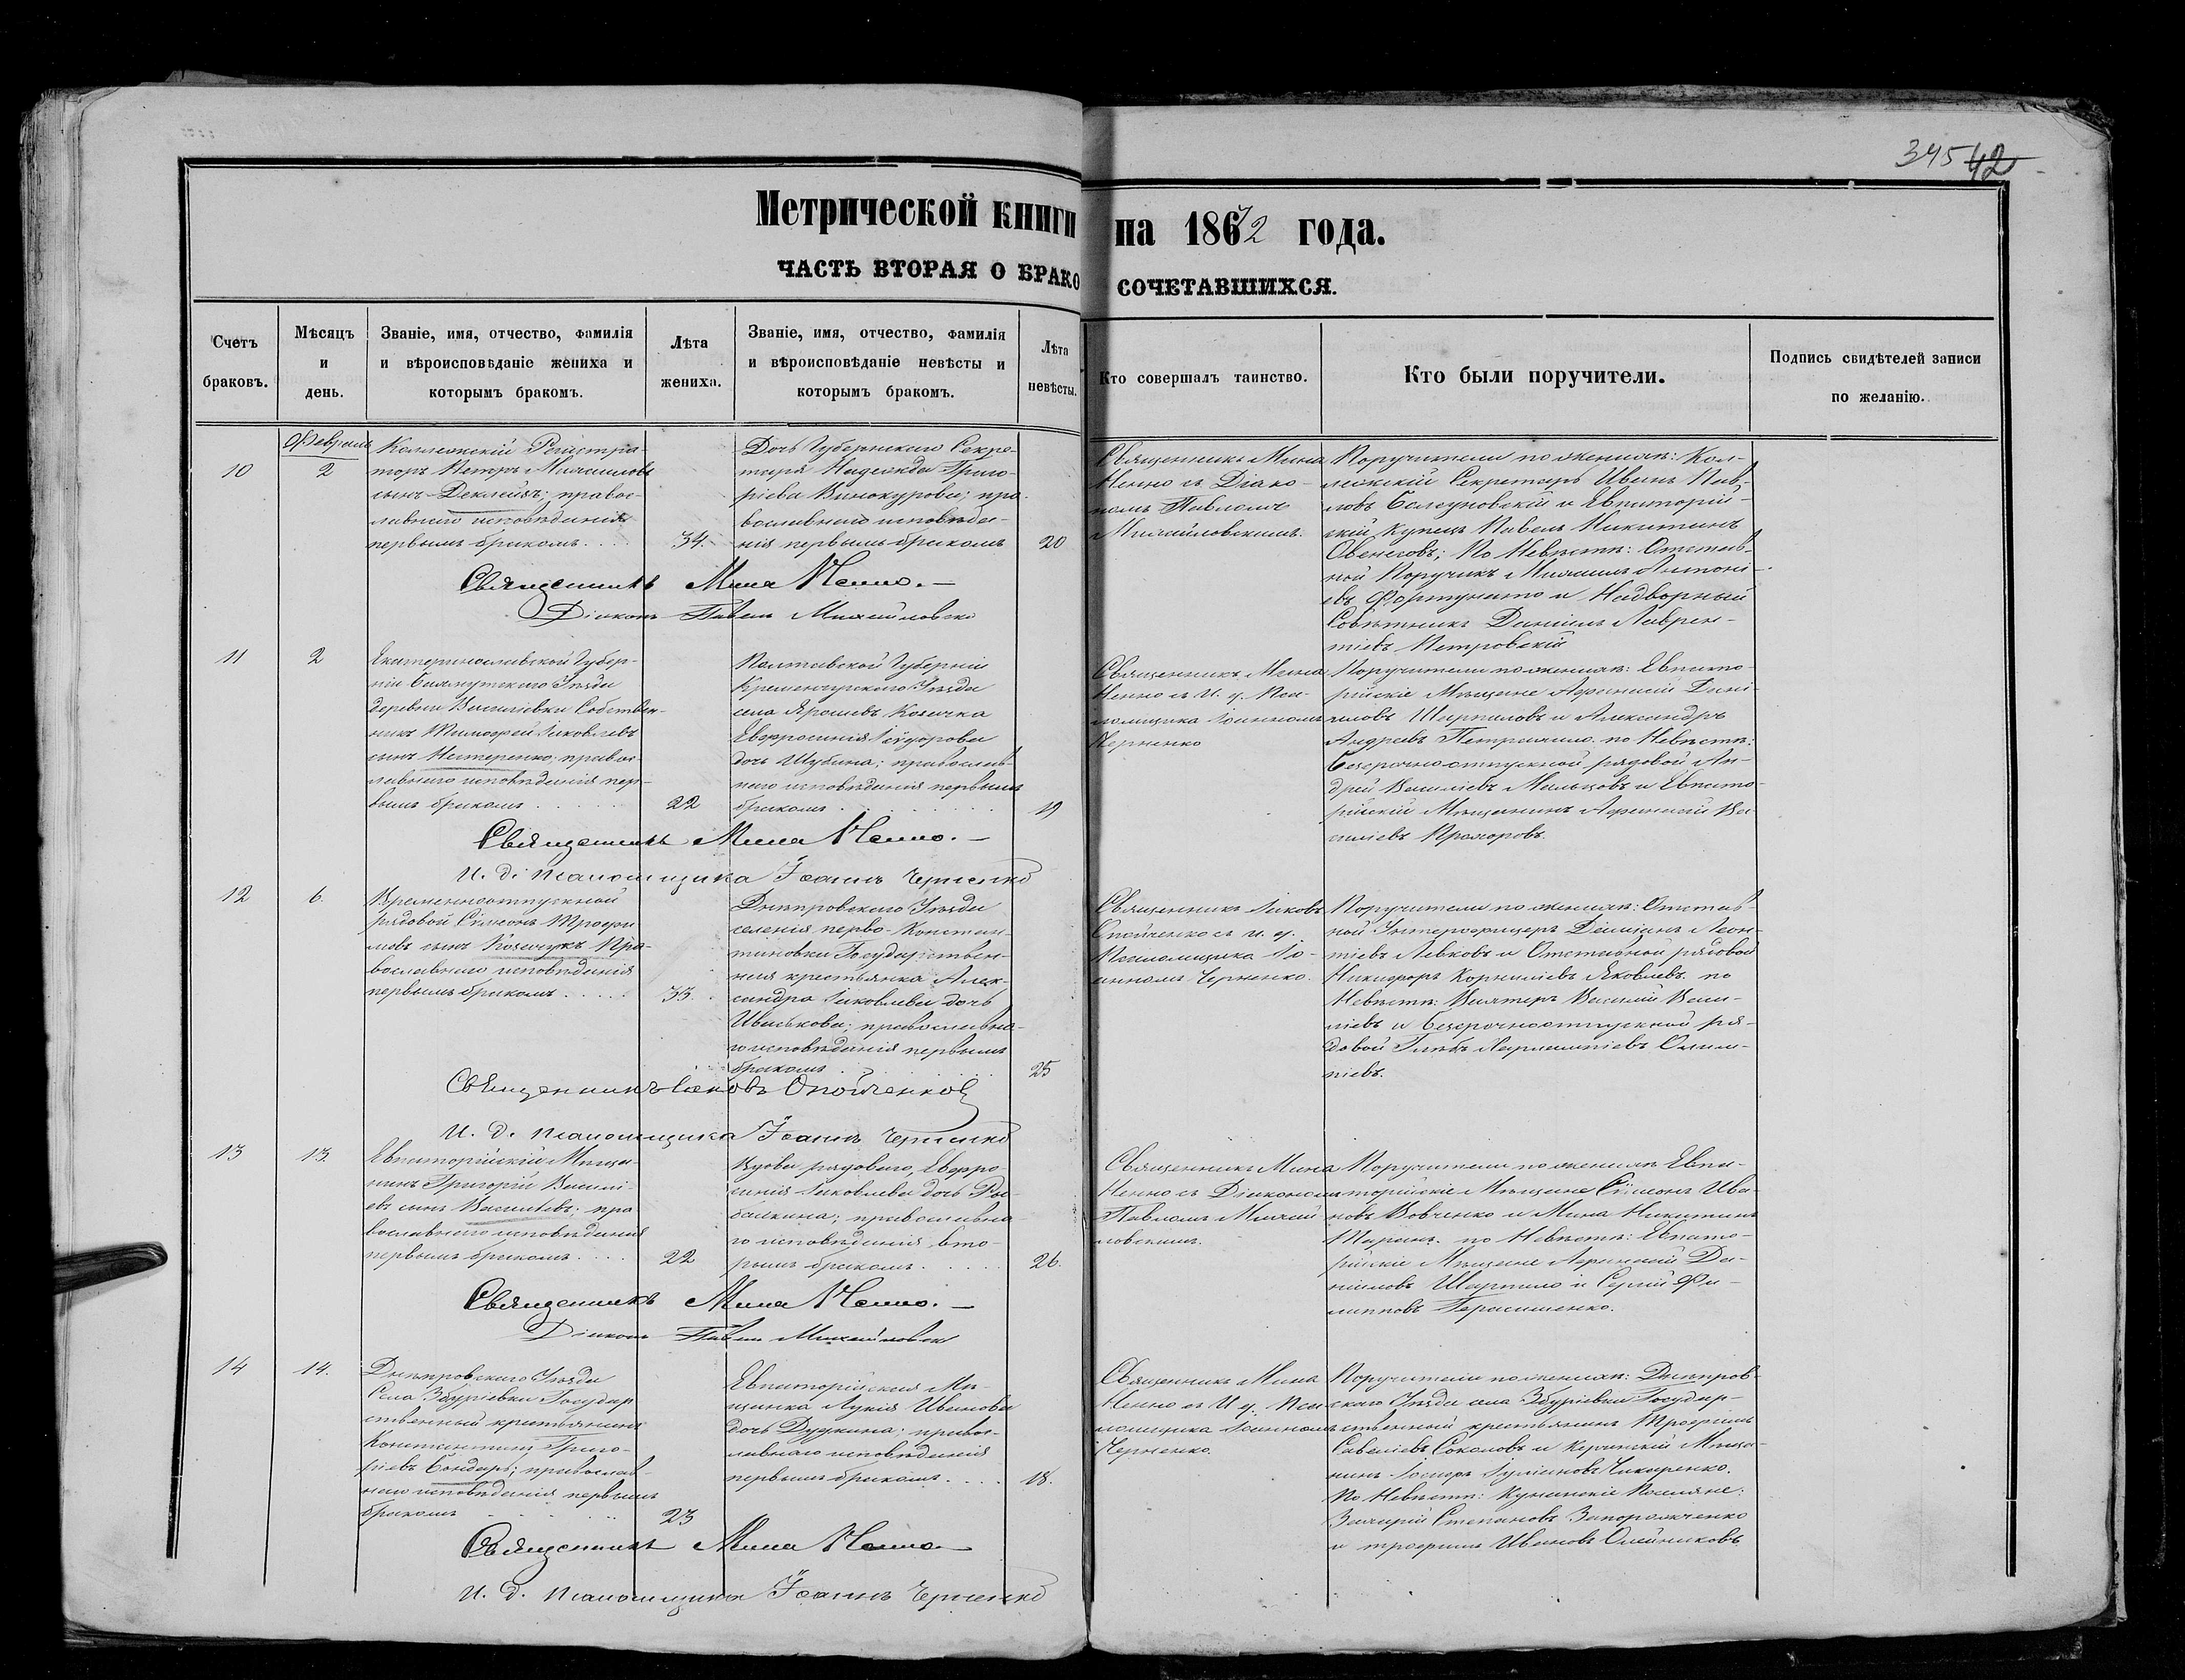 345 42
Метрической книги на 1872 года.
ЧАСТЬ ВТОРАЯ О БРАКОСОЧЕТАВШИХСЯ.
Счетъ браковъ.
Мѣсяцъ и день.
Званіе, имя, отчество, фамилія и вѣроисповѣданіе жениха и которымъ бракомъ.
Лѣта жениха.
Званіе, имя, отчество, фамилія и вѣроисповѣданіе невѣсты и которымъ бракомъ.
Лѣта невѣсты.
Кто совершалъ таинство.
Кто были поручители.
Подпись свидѣтелей записи по желанію.
10
Февраль
2
Коллежскій Регистра-
торъ Петръ Михаиловъ
сынъ Деклейнъ; правос-
лавнаго исповѣданія
первымъ бракомъ
34.
Дочь Губернскаго Секре-
таря Надежда Григо-
ріева Винокурова; пра-
вославнаго исповѣда-
нія первымъ бракомъ
20
Священникъ Мина
Ненно съ Діако-
номъ Павломъ
Михайловскимъ.
Поручители по женихѣ: Кол-
лежскій Секретарь Иванъ Пав-
ловъ и Евпаторій-
скій купецъ Павелъ Никитинъ
Овенеговъ; По Невѣстѣ: Отстав-
ной Поручикъ Михаилъ Антоні-
евъ Фортунато и Надворный
Совѣтникъ Даніилъ Лаврен-
тіевъ Петровскій
Священникъ Мина Ненно.
Діаконъ Павелъ Михайловскі
11
2
Екатеринославской Губер-
ніи Бахмутскаго Уѣзда
деревни Василіевки Собствен-
никъ Тимофей Іаковлевъ
сынъ Нестеренко, правос-
лавнаго исповѣданія пер-
вымъ бракомъ
22
Полтавской Губерніи
Кременчугскаго Уѣзда
села Козачка
Евфросинія Ісидорова
дочь Шубина; православ-
наго исповѣданія первымъ
бракомъ
19
Священникъ Мина
Ненно съ И. д. Пса-
ломщика Іоанномъ
Черненко
Поручители по женихѣ: Евпато-
рійскіе Мѣщане Афанасій Дани-
иловъ Шарпиловъ и Александръ
Андреевъ по Невѣстѣ:
Безсрочноотпускной рядовой Ан-
дрей Василіевъ Мальцовъ и Евпато-
рійскій Мѣщанинъ Афанасій Ва-
силіевъ Прохоровъ.
Священникъ Мина Ненно.
И. д. псаломщика Іоаннъ Черненко
12
6.
Временноотпускной
рядовой Симеонъ Трофи
мовъ сынъ Козачукъ Пра-
вославнаго исповѣданія
первымъ бракомъ
33.
Днѣпровскаго Уѣзда
селенія перво-Констан-
тиновки Государствен-
ная крестьянка Алек-
сандра Іаковлева дочь
Иванькова; православна-
го исповѣданія первымъ
бракомъ
25
Священникъ Іаковъ
Опойченко съ и. д.
Псаломщика Іо-
анномъ Черненко.
Поручители по женихѣ: Отстав-
ной Унтерофицеръ Даміанъ Леон-
тіевъ Левковъ и Отставной рядовой
Никифоръ Корниліевъ Яковлевъ. по
Невѣстѣ: Вахтеръ Василій Васи-
ліевъ и безсрочноотпускной ря-
довой Глѣбъ
Священникъ Іаковъ Опойченко
И. д. псаломщика Іоаннъ Черненко
13
13.
Евпаторійскій Мѣща-
нинъ Григорій Василі-
евъ сынъ Василіевъ; пра
вославнаго исповѣданія
первымъ бракомъ
22
Вдова рядоваго, Евфро-
синія Іаковлева дочь Ры-
балкина; православна
го исповѣданія вто-
рымъ бракомъ
26.
Священникъ Мина
Ненно съ Діакономъ
Павломъ Михай
ловскимъ.
Поручители по женихѣ Евпа-
торійскіе Мѣщане Симеонъ Ива-
новъ Вовченко и Мина Никитинъ
по Невѣстѣ: Евпато-
рійскіе Мѣщане Афанасій Да-
ніиловъ Шарпило и Сергій Фи-
липповъ Герасименко.
Священникъ Мина Ненно.
Діаконъ Павелъ Михайловскі
14
14.
Днѣпровскаго Уѣзда
Села Збуріевки Государ
ственный крестьянинъ
Константинъ Григо-
ріевъ Бондарь; православ-
наго исповѣданія первымъ
бракомъ
23
Евпаторійская Мѣ-
щанка Лукія Иванова
дочь Дудкина; правос-
лавнаго исповѣданія
первымъ бракомъ
18.
Священникъ Мина
Ненно съ И д. Пса
ломщика Іоанномъ
Черненко.
Поручители по женихѣ: Днѣпров-
скаго Уѣзда села Збуріевки Государ-
ственный крестьянинъ Трофимъ
Савеліевъ Соколовъ и Керчинскій Мѣща-
нинъ Іосифъ Іуліановъ Чикаренко.
По Невѣстѣ: Поселяне:
Захарій Степановъ Запорожченко
и Трофимъ Ивановъ Олейниковъ.
Священникъ Мина Ненно
И. д. псаломщика Іоаннъ Черненко